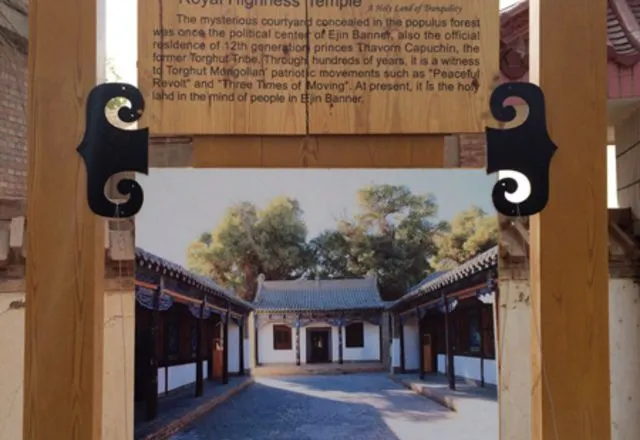 Royal Highness Temple A Holy Land of Tranquility
The mysterious courtyard concealed in the populus forest
was once the political center of Ejin Banner, also the official
residence of 12th generation princes Thavorn Capuchin, the
former Torghut Tribe. Through hundreds of years, it is a witness
to Torghut Mongolian' patriotic movements such as "Peaceful
Revolt" and "Three Times of Moving". At present, it is the holy
land in the mind of people in Ejin Banner.